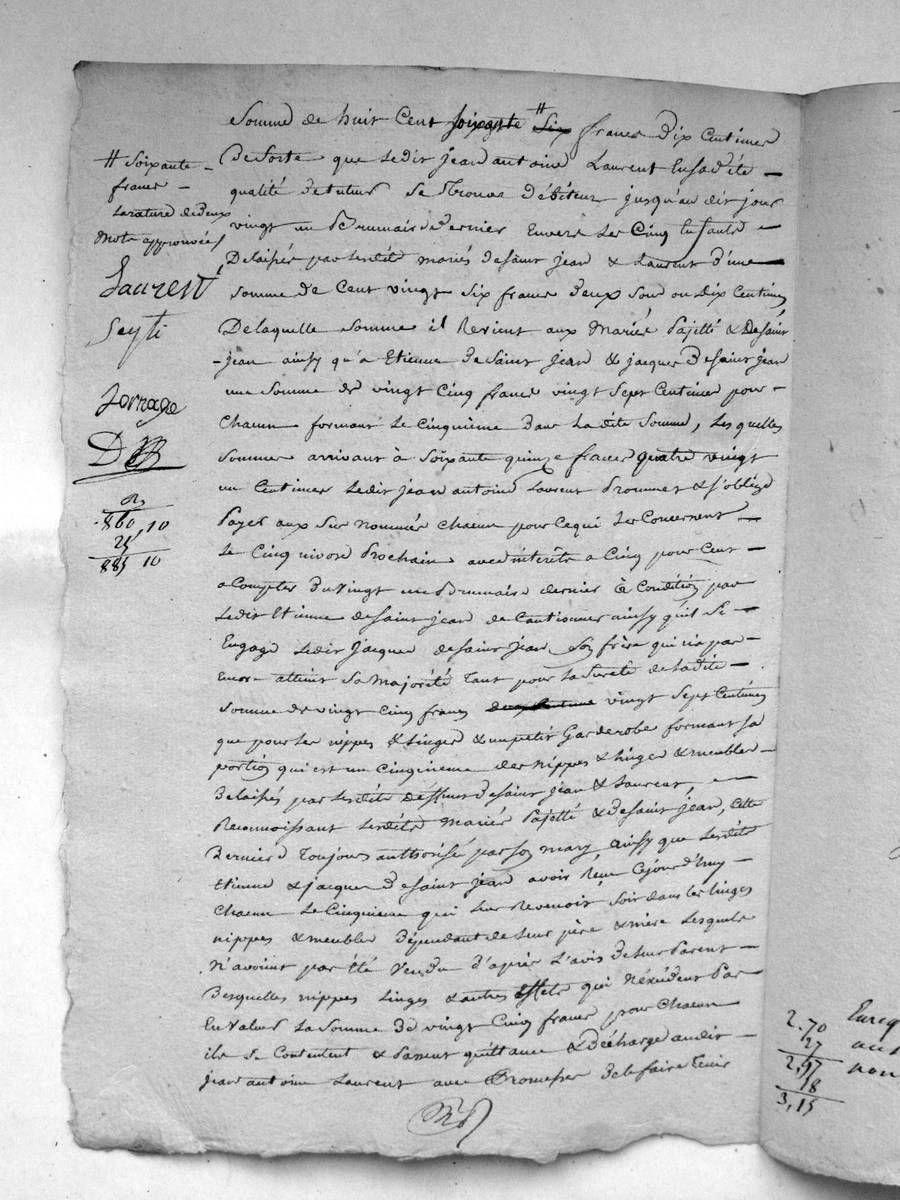 Somme de huit Cent soixante # Six francs Dix Centimes
De Sorte que Ledit jean antoine Laurent En sadite
qualité de tuteur se trouve Débiteur jusqu'au dit jour
vingt un Brumaire Dernier Envers Les Cinq Enfants
Delaissés par Lesdits mariés Desaint jean & Laurent d'une
Somme de Cent vingt Six francs deux Sous ou Dix Centimes
De laquelle Somme il Revient aux Mariés Pajetté & Desaint
jean ainsy qu'a Etienne desaint jean & jacques Desaint jean
une Somme de vingt Cinq francs vingt Sept Centimes pour
Chacun formant Le Cinquieme Dans Ladite Somme, Lesquelles
Sommes arrivant à Soixante quinze francs quatre vingt
un Centimes Ledit jean antoine Laurent Prommet & s'oblige
Payer aux Sur Nommés Chacun pour Cequi Les Concernent
Le Cinq nivose Prochain avec intérêts a Cinq pour Cent
a Compter Du vingt un Brumaire dernier à Condition par
Ledit Etienne desaint jean de Cautionner ainsy qu'il S'i
Engage Ledit Jacques desaint jean Son frère qui n'a pas
Encor attint Sa Majorité Tant pour la Sureté de Ladite
Somme de vingt Cinq francs vingt Sept Centimes
que pour Les nippes & Linges & un petit Garderobe formant sa
portion qui est un Cinquieme des Nippes & Linges & meubles
Delaissés par Lesdits deffunts desaint jean & Laurent,
Reconnoissant Lesdits Mariés Pajetté & desaint jean, Cette
Derniere Toujours authorisée par Son mary ainsy que Lesdits
Etienne & jacques Desaint jean avoir Reçu Cejour d'huy
Chacun Le Cinquieme qui Leur Revenoit Soit dans les linges
nippes & meubles Dépendant de Leur père & mère Lesquels
N'avoint pas Eté Vendu d'après L'avis de Leur Parent
Desquelles nippes Linges & autres Effets qui N'éxcedent Pas
En Valeur La Somme De vingt Cinq francs pour Chacun
ils Se Contentent & Passent quittance & Décharge audit
jean antoine Laurent avec Promesse De le faire Tenir
# Soixante
francs
La rature de deux
Mots approuvées
Laurent
Seyti
Jornage
860, 10
25
885 10
2.70
27
2,97
18
3,15